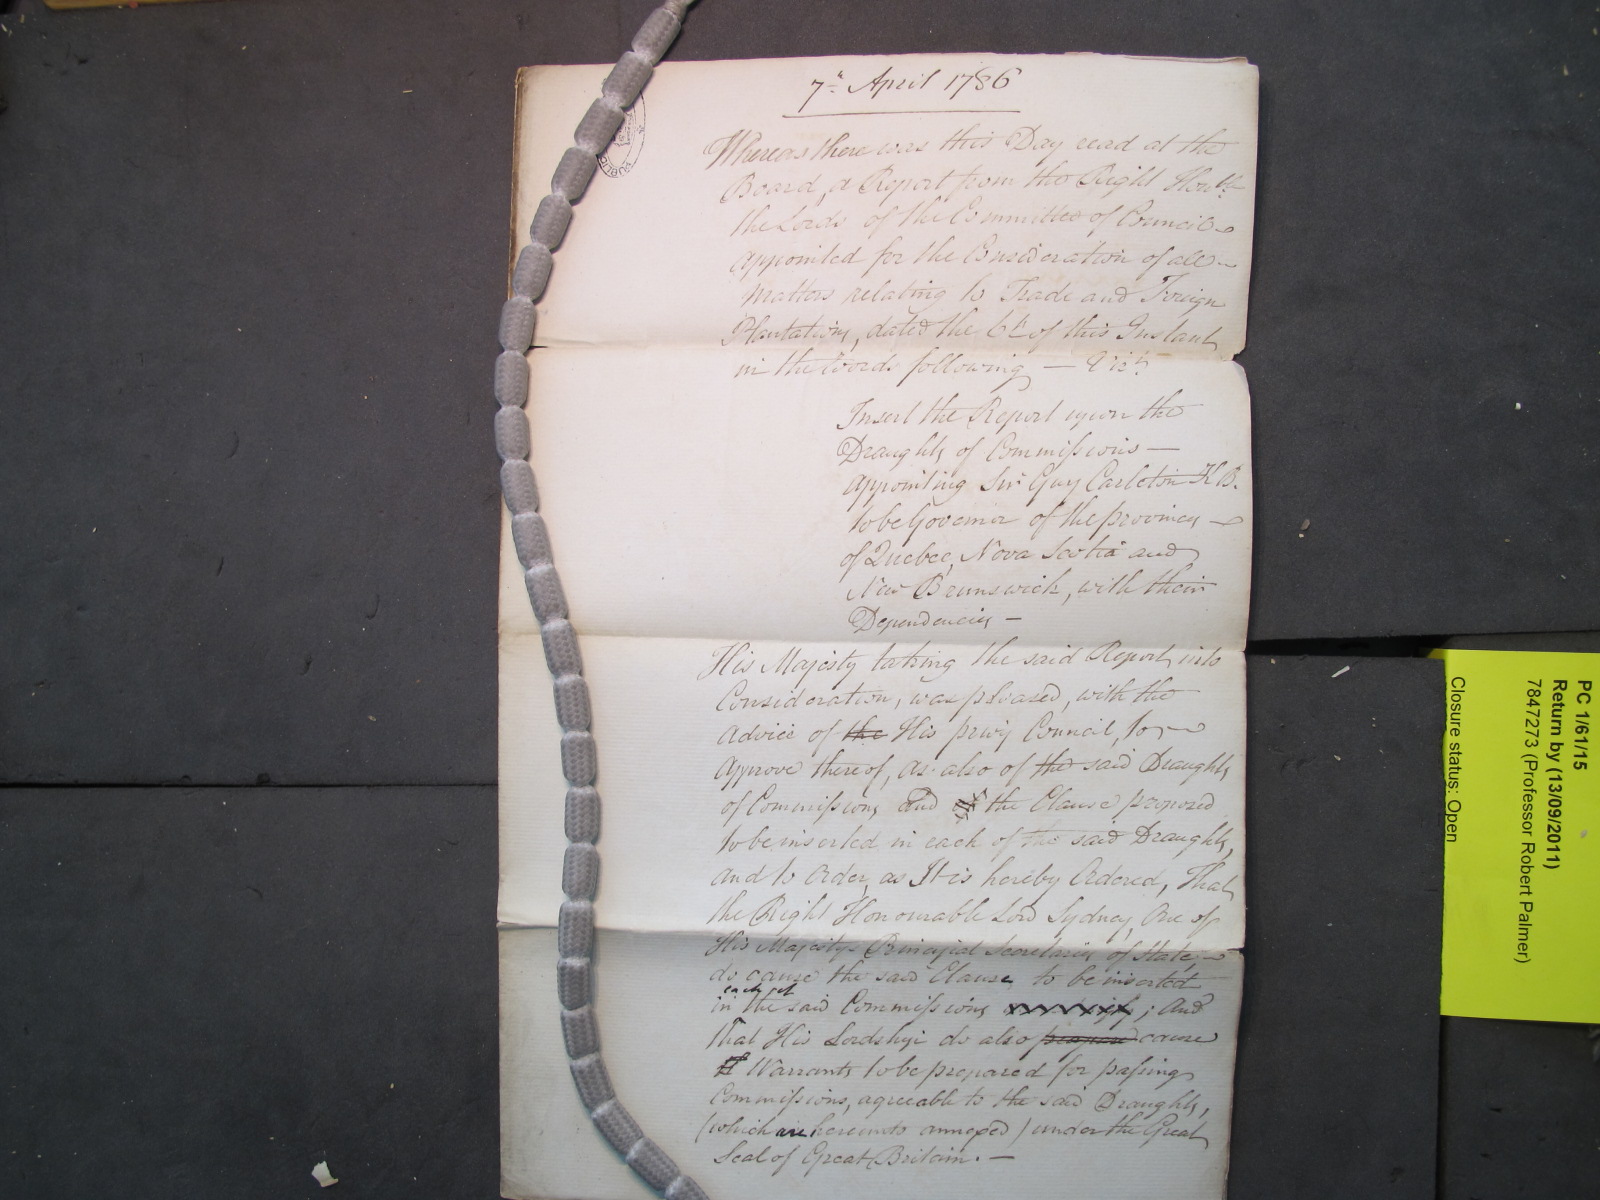 7th April 1786
PUBLIC
Whereas there was this Day read at the
Board, a Report from the Right Honble
the Lords of the Committee of Council
Appointed for the Consideration of all
Matters relating to Trade and Foreign
Plantations, dated the 6th of this Instant
in the Words following — Vizt
Insert the Report upon the
Draughts of Commissions —
Appointing Sir Guy Carleton K.B.
to be Governor of the provinces
of Quebec, Nova Scotia and
New Brunswick, with their
Dependencies —
His Majesty taking the said Report into
Consideration, was pleased, with the
Advice of the His privy Council, to
Approve thereof, as also of the said Draughts
of Commissions and the Clause proposed
to be inserted in each of the said Draughts,
and to Order, as It is hereby Ordered, That
the Right Honourable Lord Sydney, One of
His Majestys Principal Secretaries of State
do cause the said Clause to be inserted
each of
in the said Commissions ; And
that His Lordship do also prepare cause
Warrants to be prepared for passing
Commissions, agreeable to the said Draughts,
(which are hereunto annexed) under the Great
Seal of Great Britain. —
PC 1/61/15
Return by (13/09/2011)
7847273 (Professor Robert Palmer)
Closure status: Open